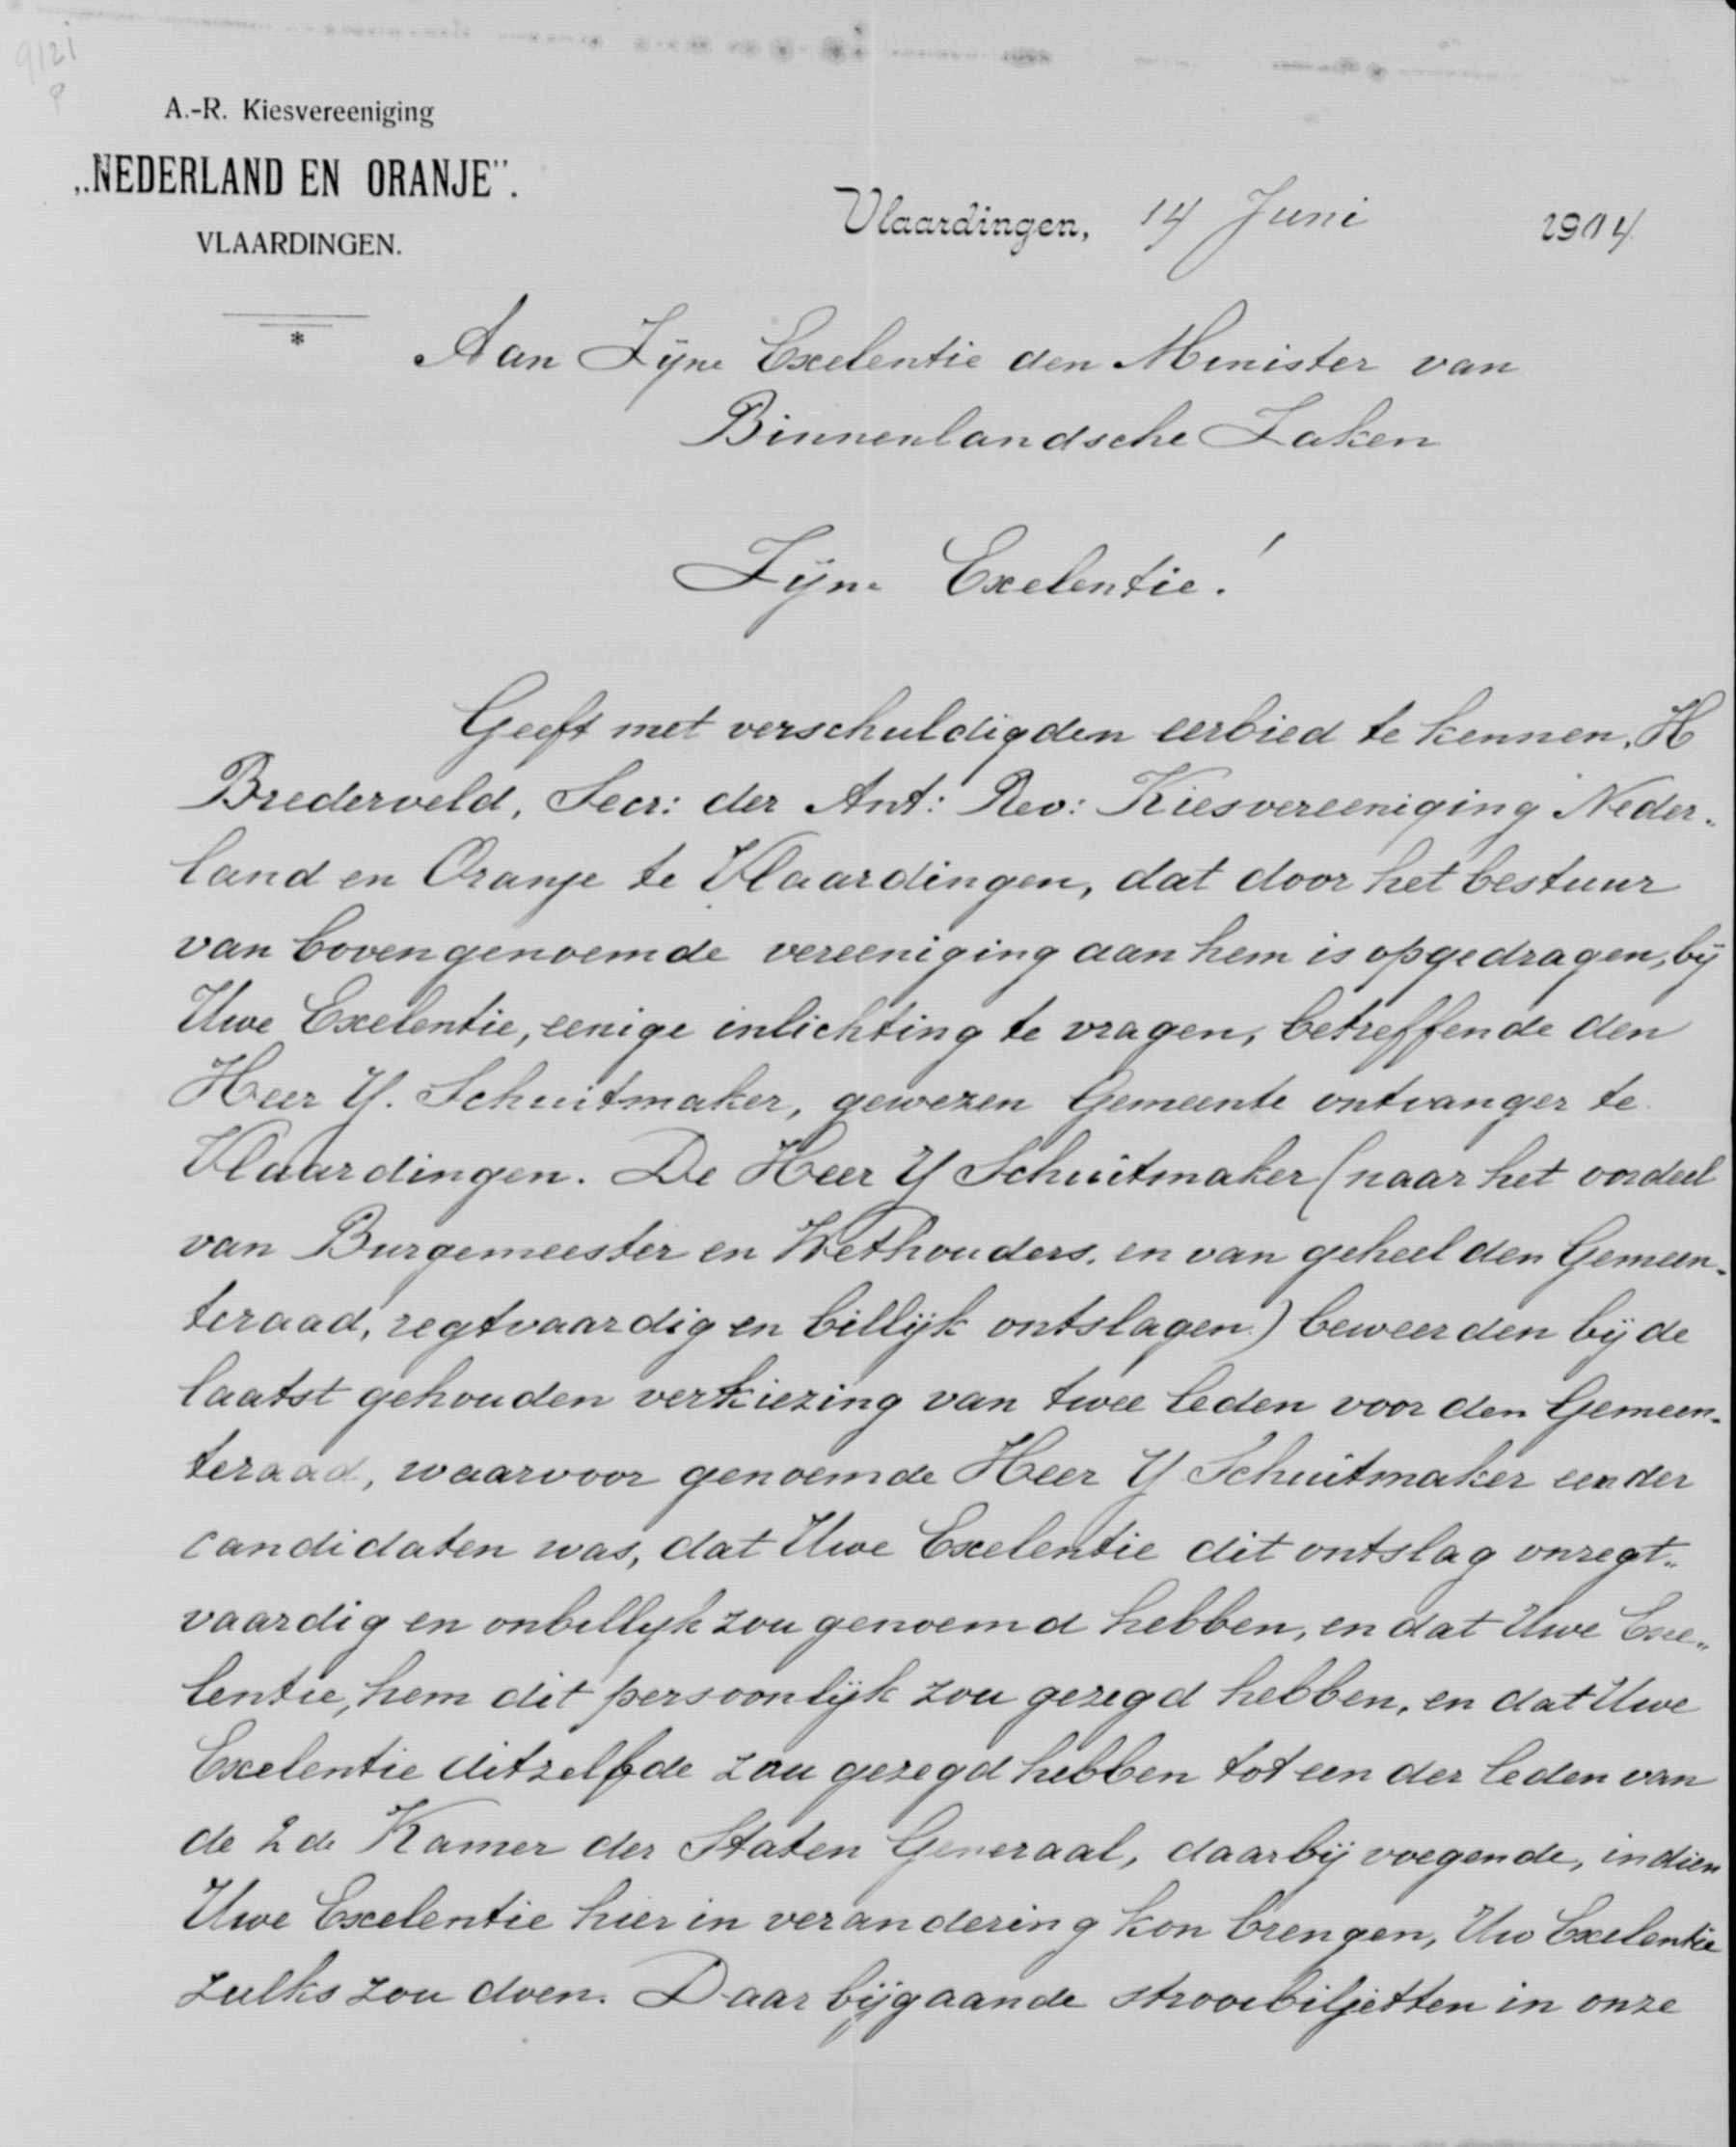 9121
P
A.-R. Kiesvereeniging
„NEDERLAND EN ORANJE".
VLAARDINGEN.
*
Vlaardingen, 14 Juni 1904
Aan Zijne Exelentie den Minister van
Binnenlandsche Zaken
Zijne Exelentie!
Geeft met verschuldigden eerbied te kennen, H
Brederveld, Secr: der Ant: Rev: Kiesvereeniging Neder-
land en Oranje te Vlaardingen, dat door het bestuur
van bovengenoemde vereeniging aan hem is opgedragen, bij
Uwe Exelentie, eenige inlichting te vragen, betreffende den
Heer Y. Schuitmaker, gewezen Gemeente ontvanger te
Vlaardingen. De Heer Y Schuitmaker (naar het oordeel
van Burgemeester en Wethouders, en van geheel den Gemeen-
teraad, regtvaardig en billijk ontslagen.) beweerden bij de
laatst gehouden verkiezing van twee leden voor den Gemeen-
teraad, waarvoor genoemde Heer Y Schuitmaker een der
candidaten was, dat Uwe Exelentie dit ontslag onregt-
vaardig en onbillijk zou genoemd hebben, en dat Uwe Exe-
lentie, hem dit persoonlijk zou gezegd hebben, en dat Uwe
Exelentie ditzelfde zou gezegd hebben tot een der leden van
de 2de Kamer der Staten Generaal, daarbij voegende, indien
Uwe Exelentie hier in verandering kon brengen, Uw Exelentie
zulks zou doen. Daar bijgaande strooibiljetten in onze